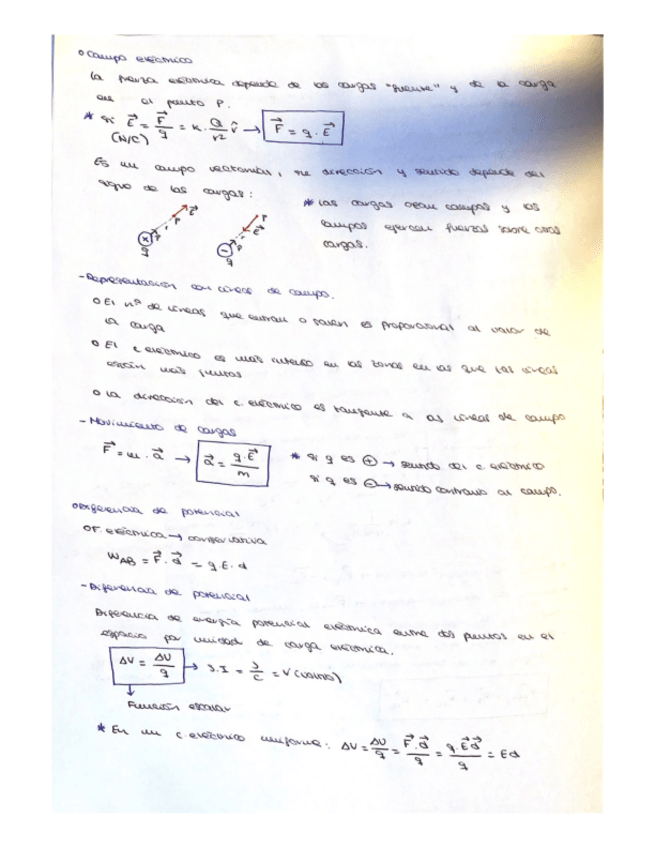 o Campo eléctrico
La fuerza eléctrica depende de las cargas "fuente" y de la carga
en el punto P.
* si E⃗ = F⃗/q = K · Q/r² r̂ → F⃗ = q · E⃗
(N/C)
Es un campo vectorial, su dirección y sentido depende del
signo de las cargas:
* Las cargas crean campos y los
campos ejercen fuerzas sobre otras
cargas.
+ q r̂ P E⃗
- q r̂ E⃗ P
- Representación con líneas de campo.
o El nº de líneas que entran o salen es proporcional al valor de
la carga
o El c eléctrico es más intenso en las zonas en las que las líneas
están más juntas
o La dirección del c. eléctrico es tangente a las líneas de campo
- Movimiento de cargas
F⃗ = m · a⃗ → a⃗ = q · E⃗/m
* si q es ⊕ → sentido del c. eléctrico
si q es ⊖ → sentido contrario al campo.
o Diferencia de potencial
o F. eléctrica → conservativa
W_AB = F⃗ · d⃗ = q · E · d
- Diferencia de potencial
Diferencia de energía potencial eléctrica entre dos puntos en el
espacio por unidad de carga eléctrica.
ΔV = ΔU/q → S.I = J/C = V (voltio)
↓
Función escalar
* En un c. eléctrico uniforme: ΔV = ΔU/q = F⃗ · d⃗/q = q · E⃗ d⃗/q = Ed